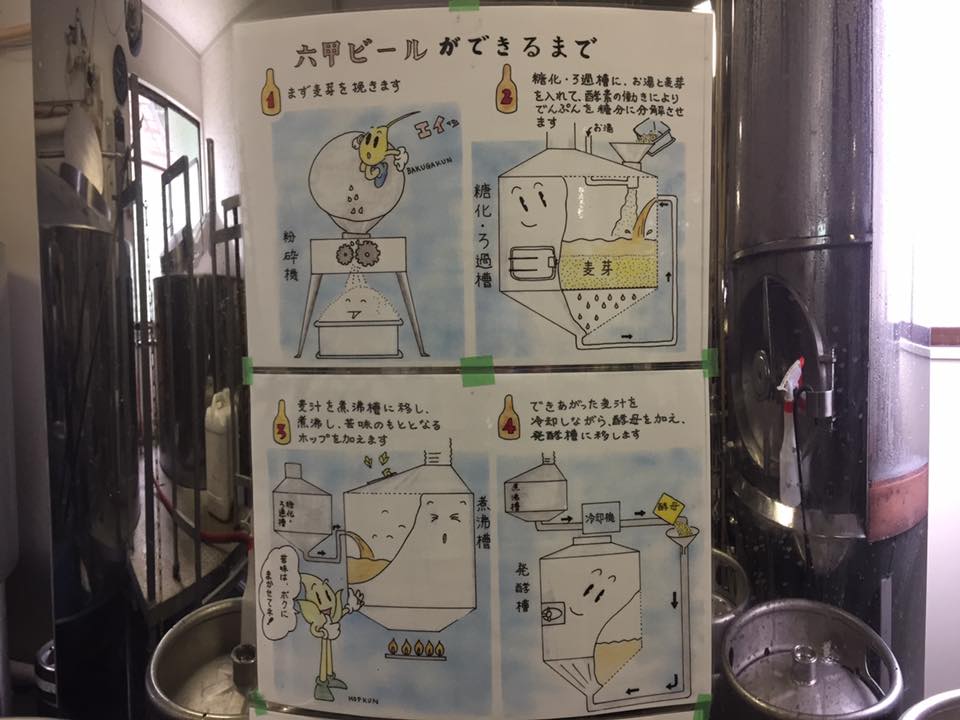 六甲ビールができるまで
1
まず麦芽を挽きます
エイッ
BAKUGAKUN
粉砕機
2
糖化・ろ過槽に、お湯と麦芽
を入れて、酵素の働きにより
でんぷんを糖分に分解させ
ます
お湯
糖化・ろ過槽
麦芽
3
麦汁を煮沸槽に移し、
煮沸し、苦味のもととなる
ホップを加えます
糖化・
ろ過槽
煮沸槽
苦味は、ボクに
まかせてネ!
HOPKUN
4
できあがった麦汁を
冷却しながら、酵母を加え、
発酵槽に移します
煮沸槽
冷却機
酵母
発酵槽